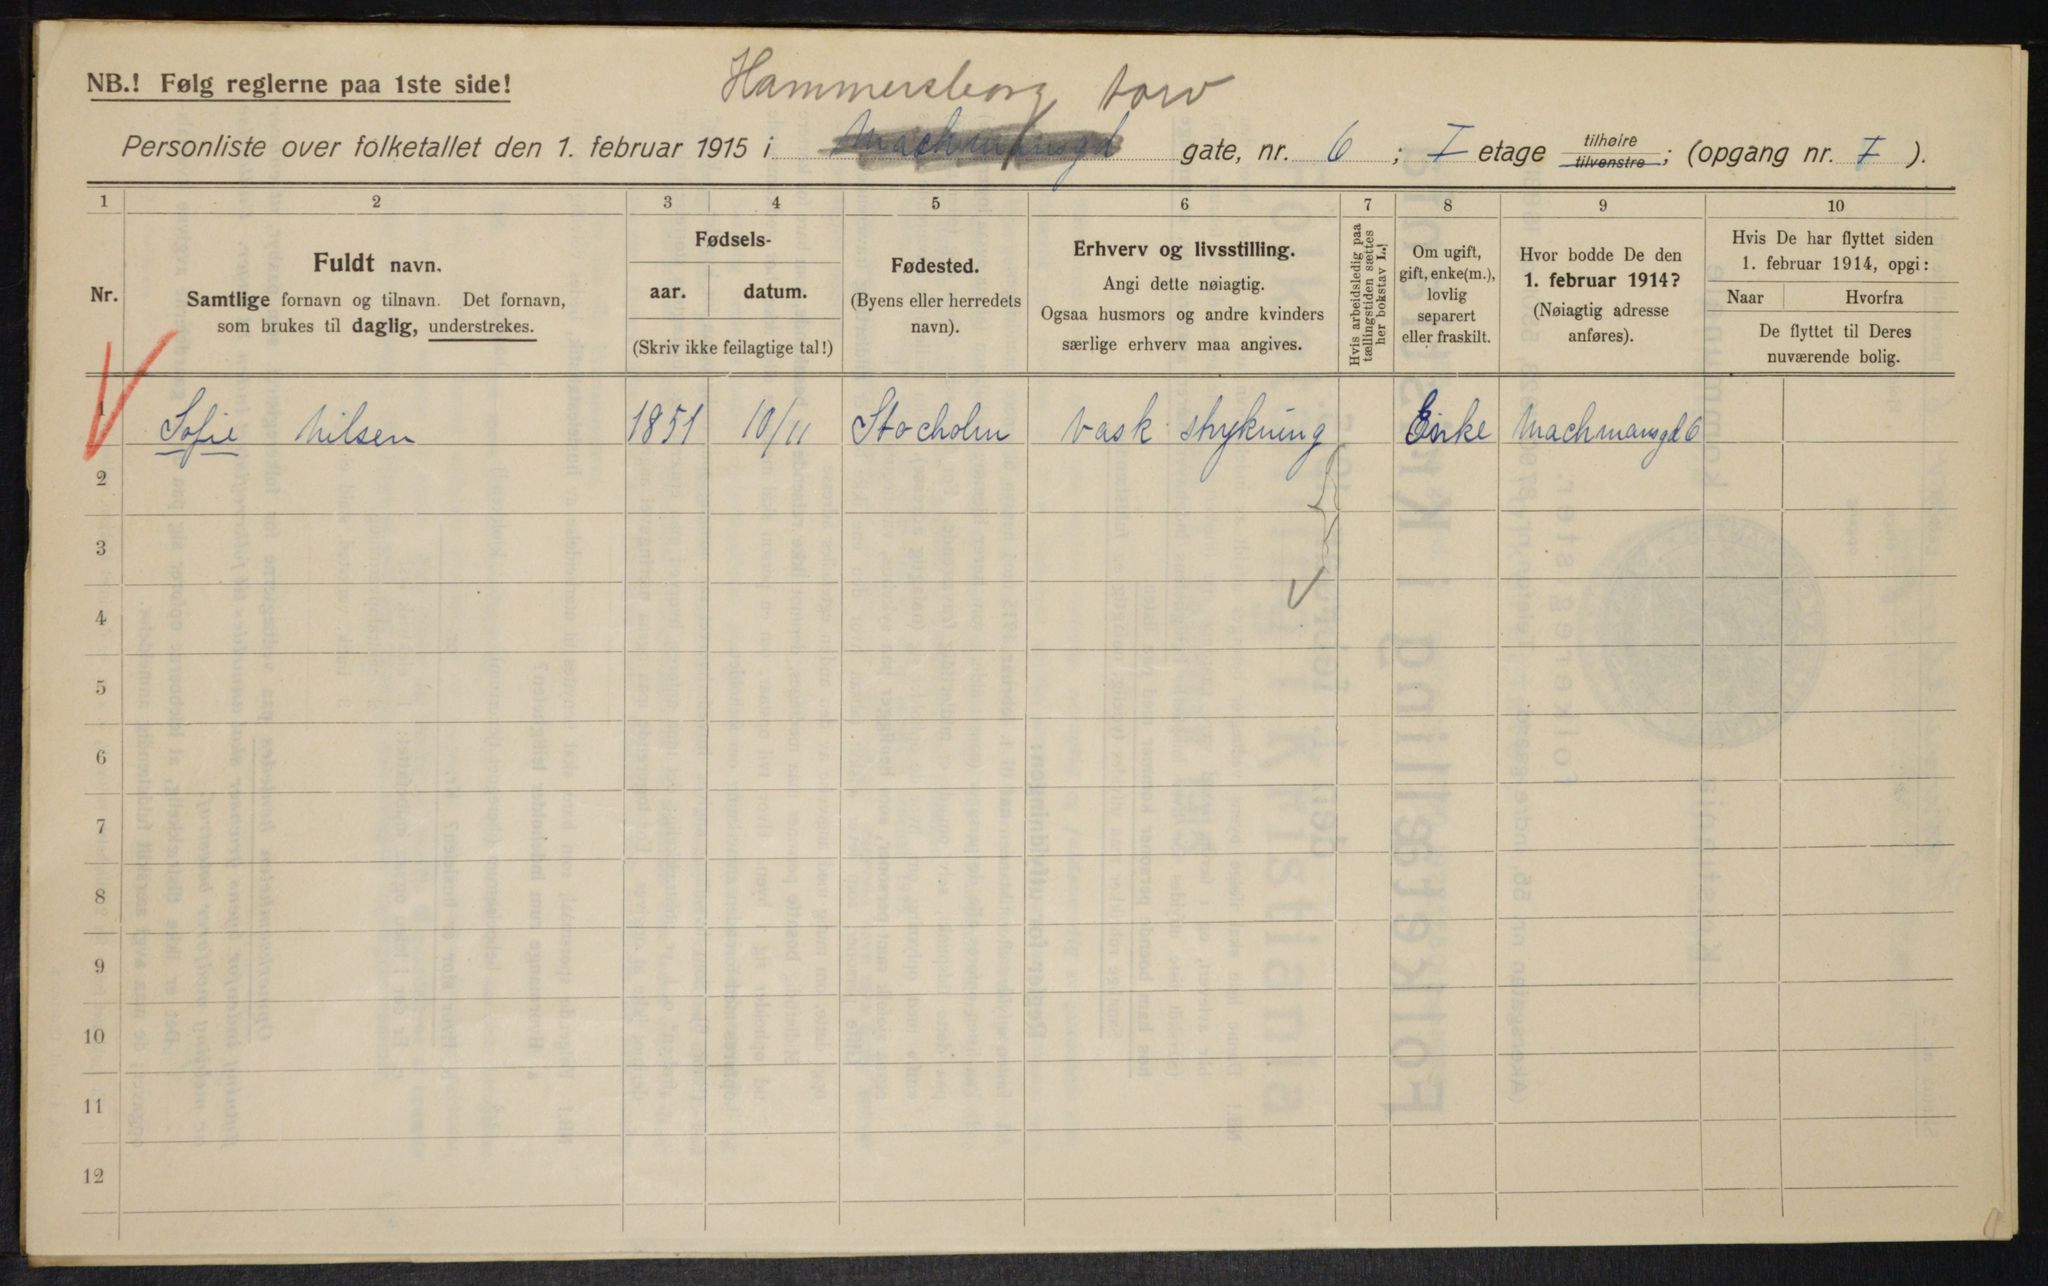 NB.! Følg reglerne paa 1ste side!
Hammersborg torv
Personliste over folketallet den 1. februar 1915 i Machmansgd gate, nr. 6 ; I etage tilhøire tilvenstre ; (opgang nr. I ).
1 2 3 4 5 6 7 8 9 10
Nr.
Fuldt navn.
Samtlige fornavn og tilnavn. Det fornavn,
som brukes til daglig, understrekes.
Fødsels-
aar. datum.
(Skriv ikke feilagtige tal!)
Fødested.
(Byens eller herredets
navn).
Erhverv og livsstilling.
Angi dette nøiagtig.
Ogsaa husmors og andre kvinders
særlige erhverv maa angives.
Hvis arbeidsledig paa
tællingstiden sættes
her bokstav L.!
Om ugift,
gift, enke(m.),
lovlig
separert
eller fraskilt.
Hvor bodde De den
1. februar 1914?
(Nøiagtig adresse
anføres).
Hvis De har flyttet siden
1. februar 1914, opgi:
Naar Hvorfra
De flyttet til Deres
nuværende bolig.
1 Sofie Nilsen 1851 10/11 Stocholm Vask strykning Enke Machmansgd 6
2
3
4
5
6
7
8
9
10
11
12